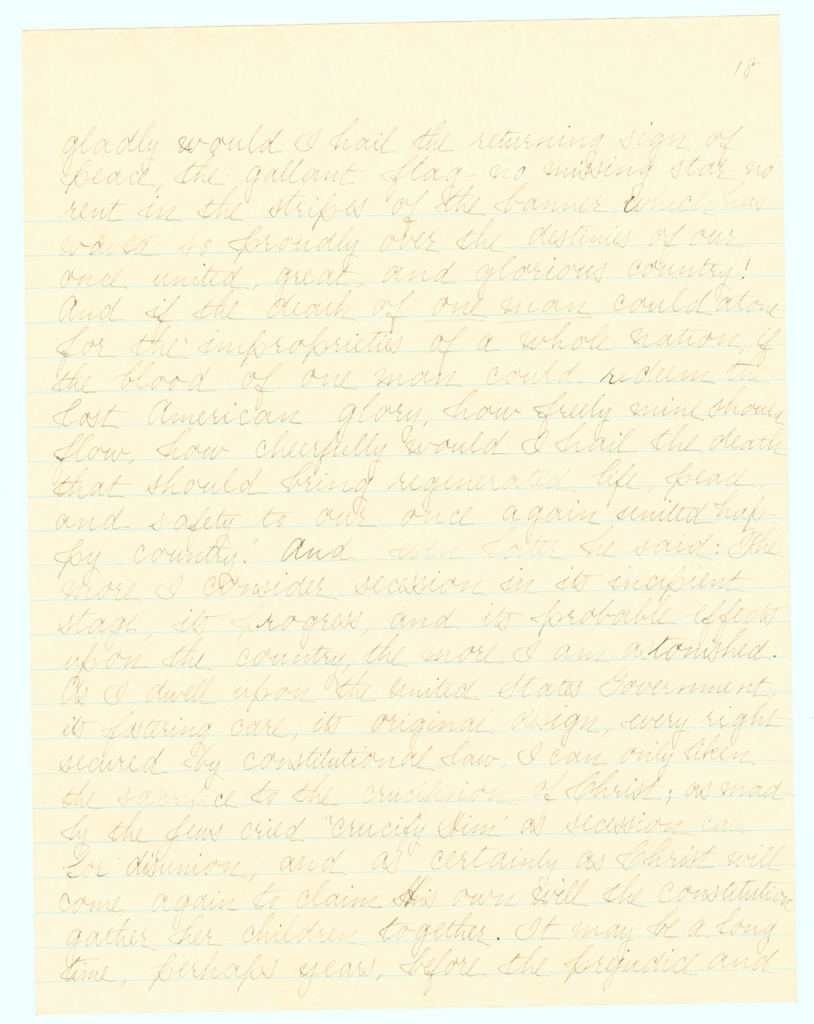 18
gladly would I hail the returning sign of
peace, the gallant flag - no missing star - no
rent in the stripes of the banner, which has
waved so proudly over the destinies of our
once united, great, and glorious country!
And if the death of one man could atone
for the improprieties of a whole nation, if
the blood of one man could redeem the
lost American glory, how freely mine should
flow, how cheerfully would I hail the death
that should bring regenerated life, peace,
and safety to our once again united hap-
py country." And even later he said: "The
more I consider secession in its incipient
stage, its progress, and its probable effects
upon the country, the more I am astonished.
As I dwell upon the United States Government,
its fostering care, its original design, every right
secured by constitutional law, I can only liken
the sacrifice to the crucifixion of Christ; as mad-
ly the Jews cried 'crucify Him' as secession calls
for disunion, and as certainly as Christ will
come again to claim His own will the constitution
gather her children together. It may be a long
time, perhaps years, before the prejudice and